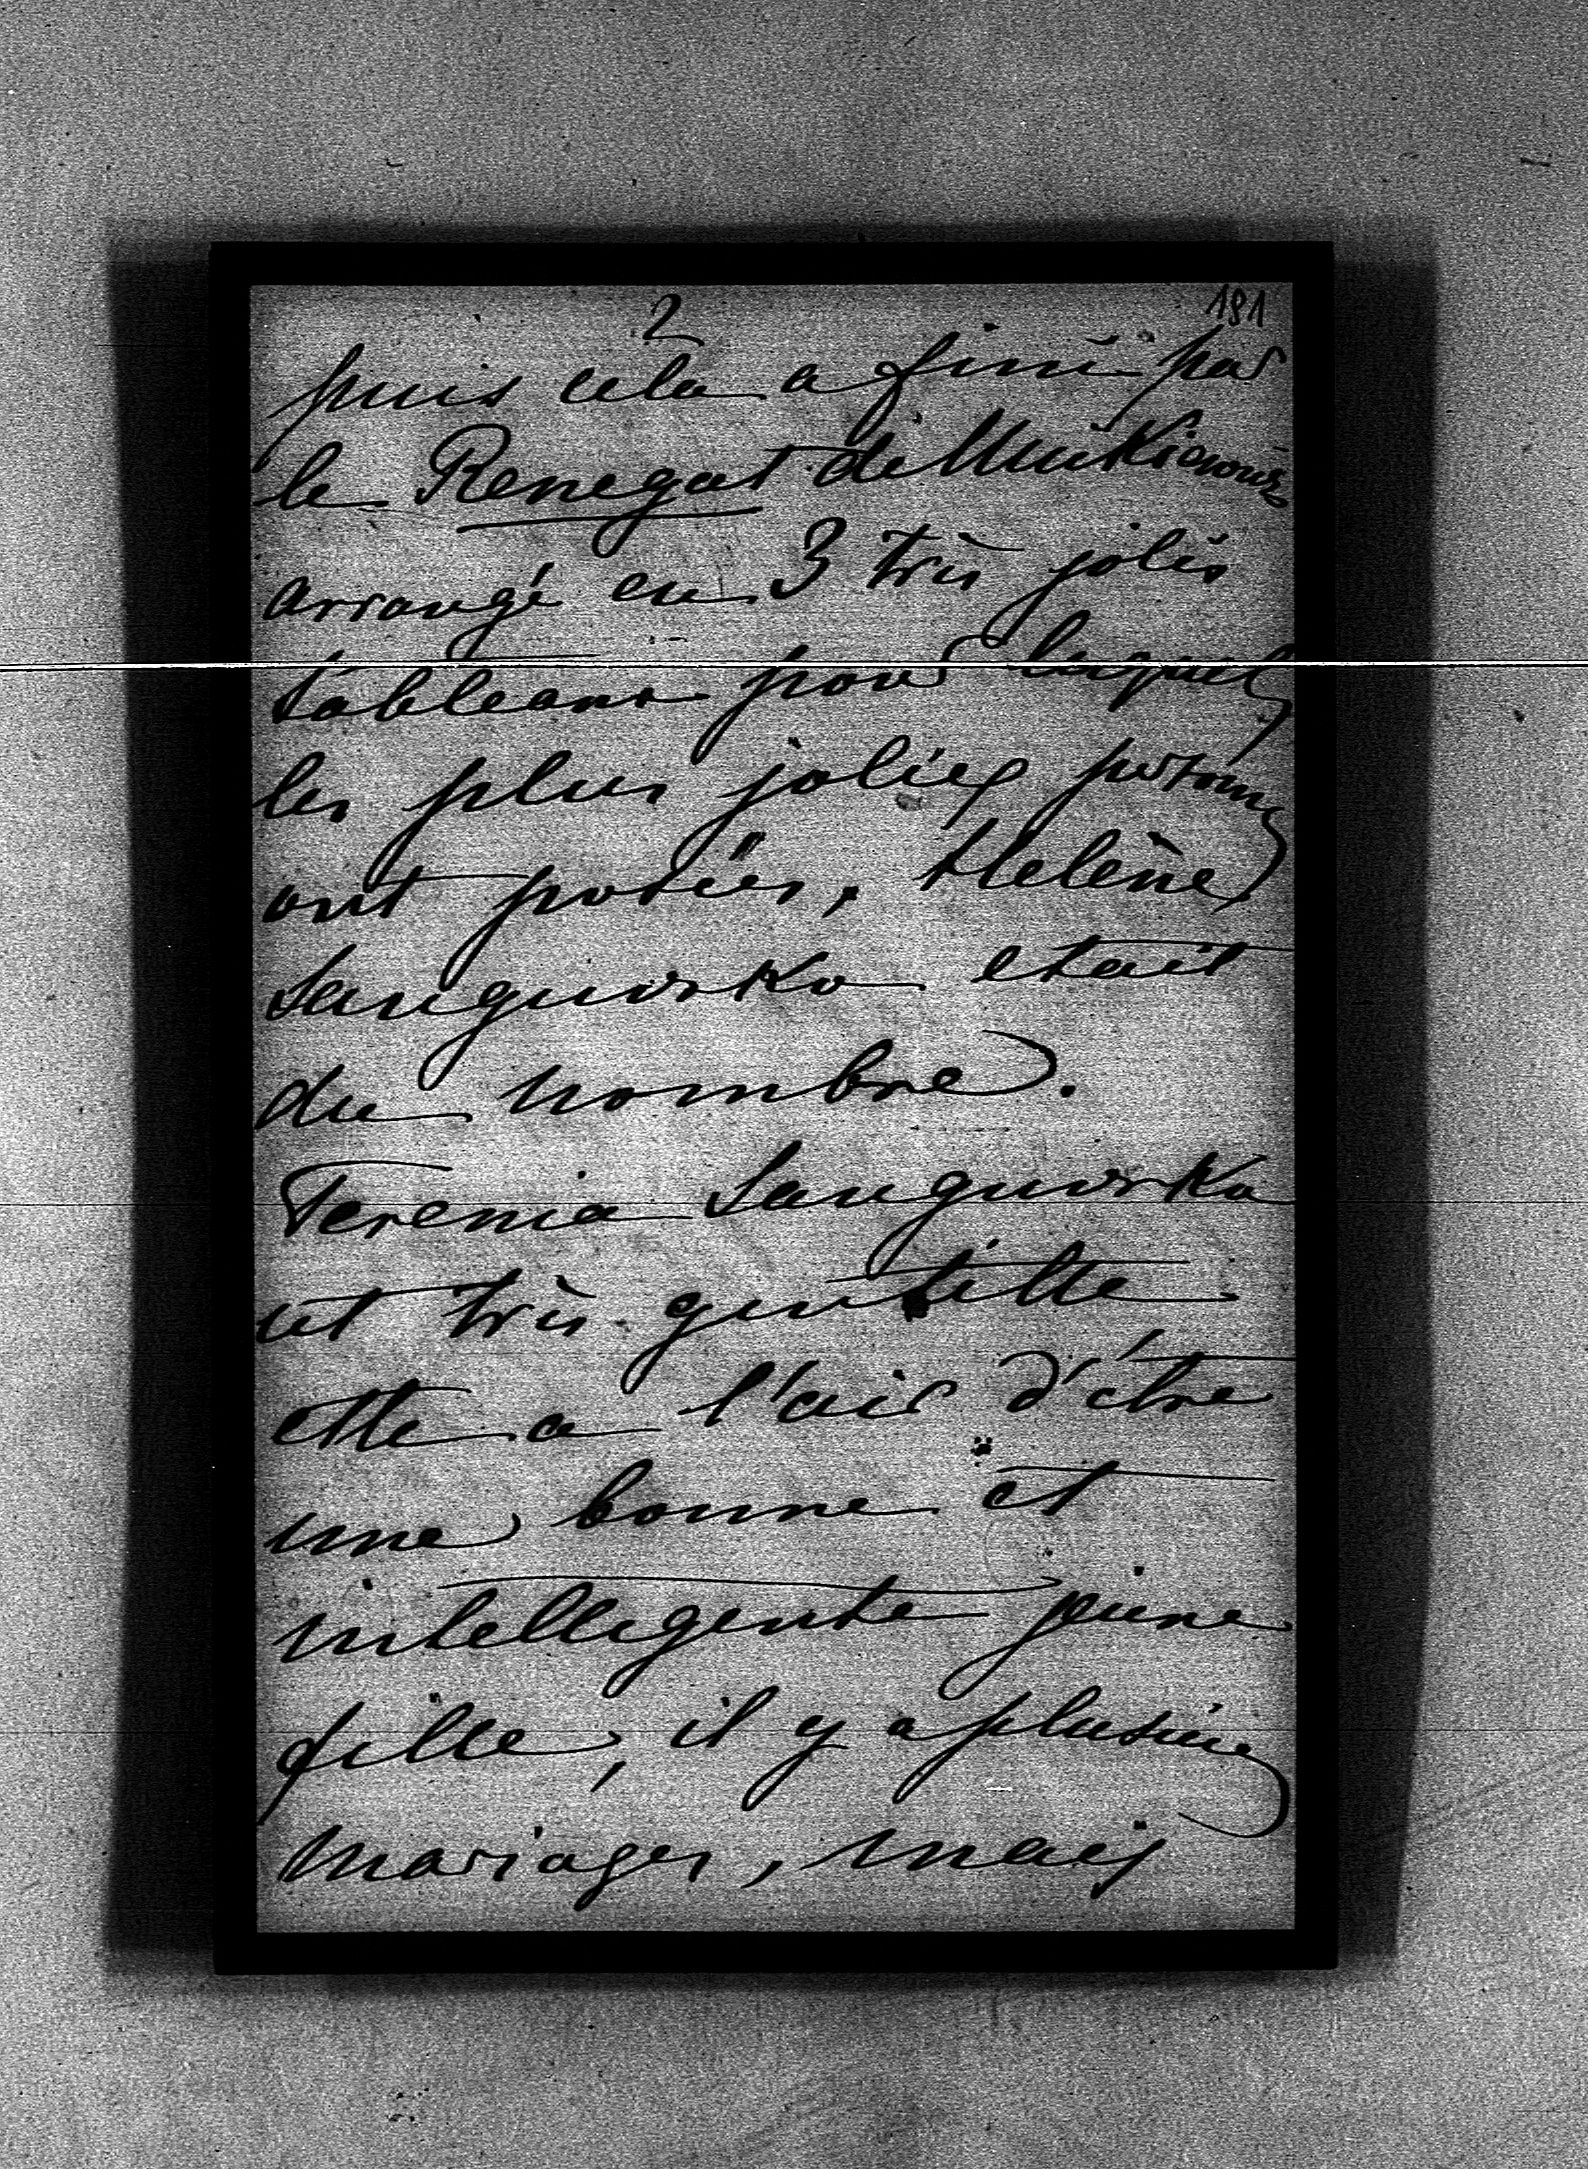 2
181
puis cela a fini par
le Renegat de Mickiewicz
arrangé en 3 très jolis
tableaux pour laquel
les plus jolies personnes
ont posées, Helène
Sanguszko etait
du nombre.
Terenia Sanguszko
est très gentille
elle a l'air d'être
une bonne et
intelligente jeune
fille, il y a plusieurs
mariages, mais